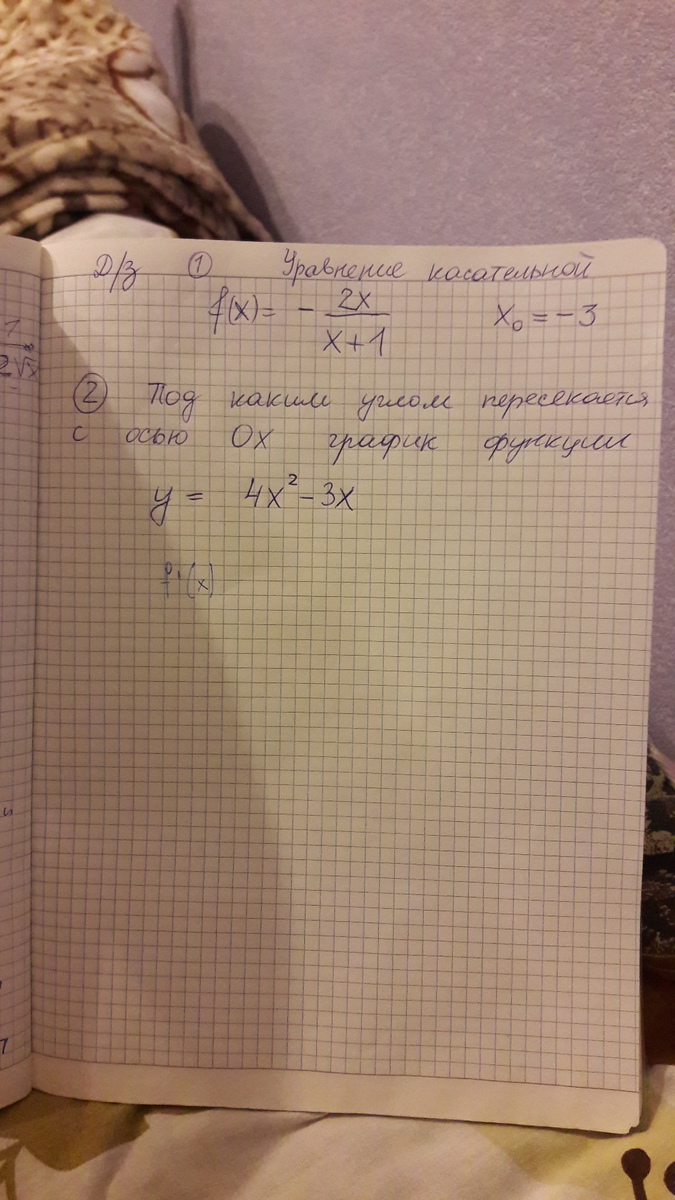 Д/з ① Уравнение касательной
f(x) = - 2x / x+1 x₀ = -3
② Под каким углом пересекается
с осью Ox график функции
y = 4x² - 3x
f'(x)